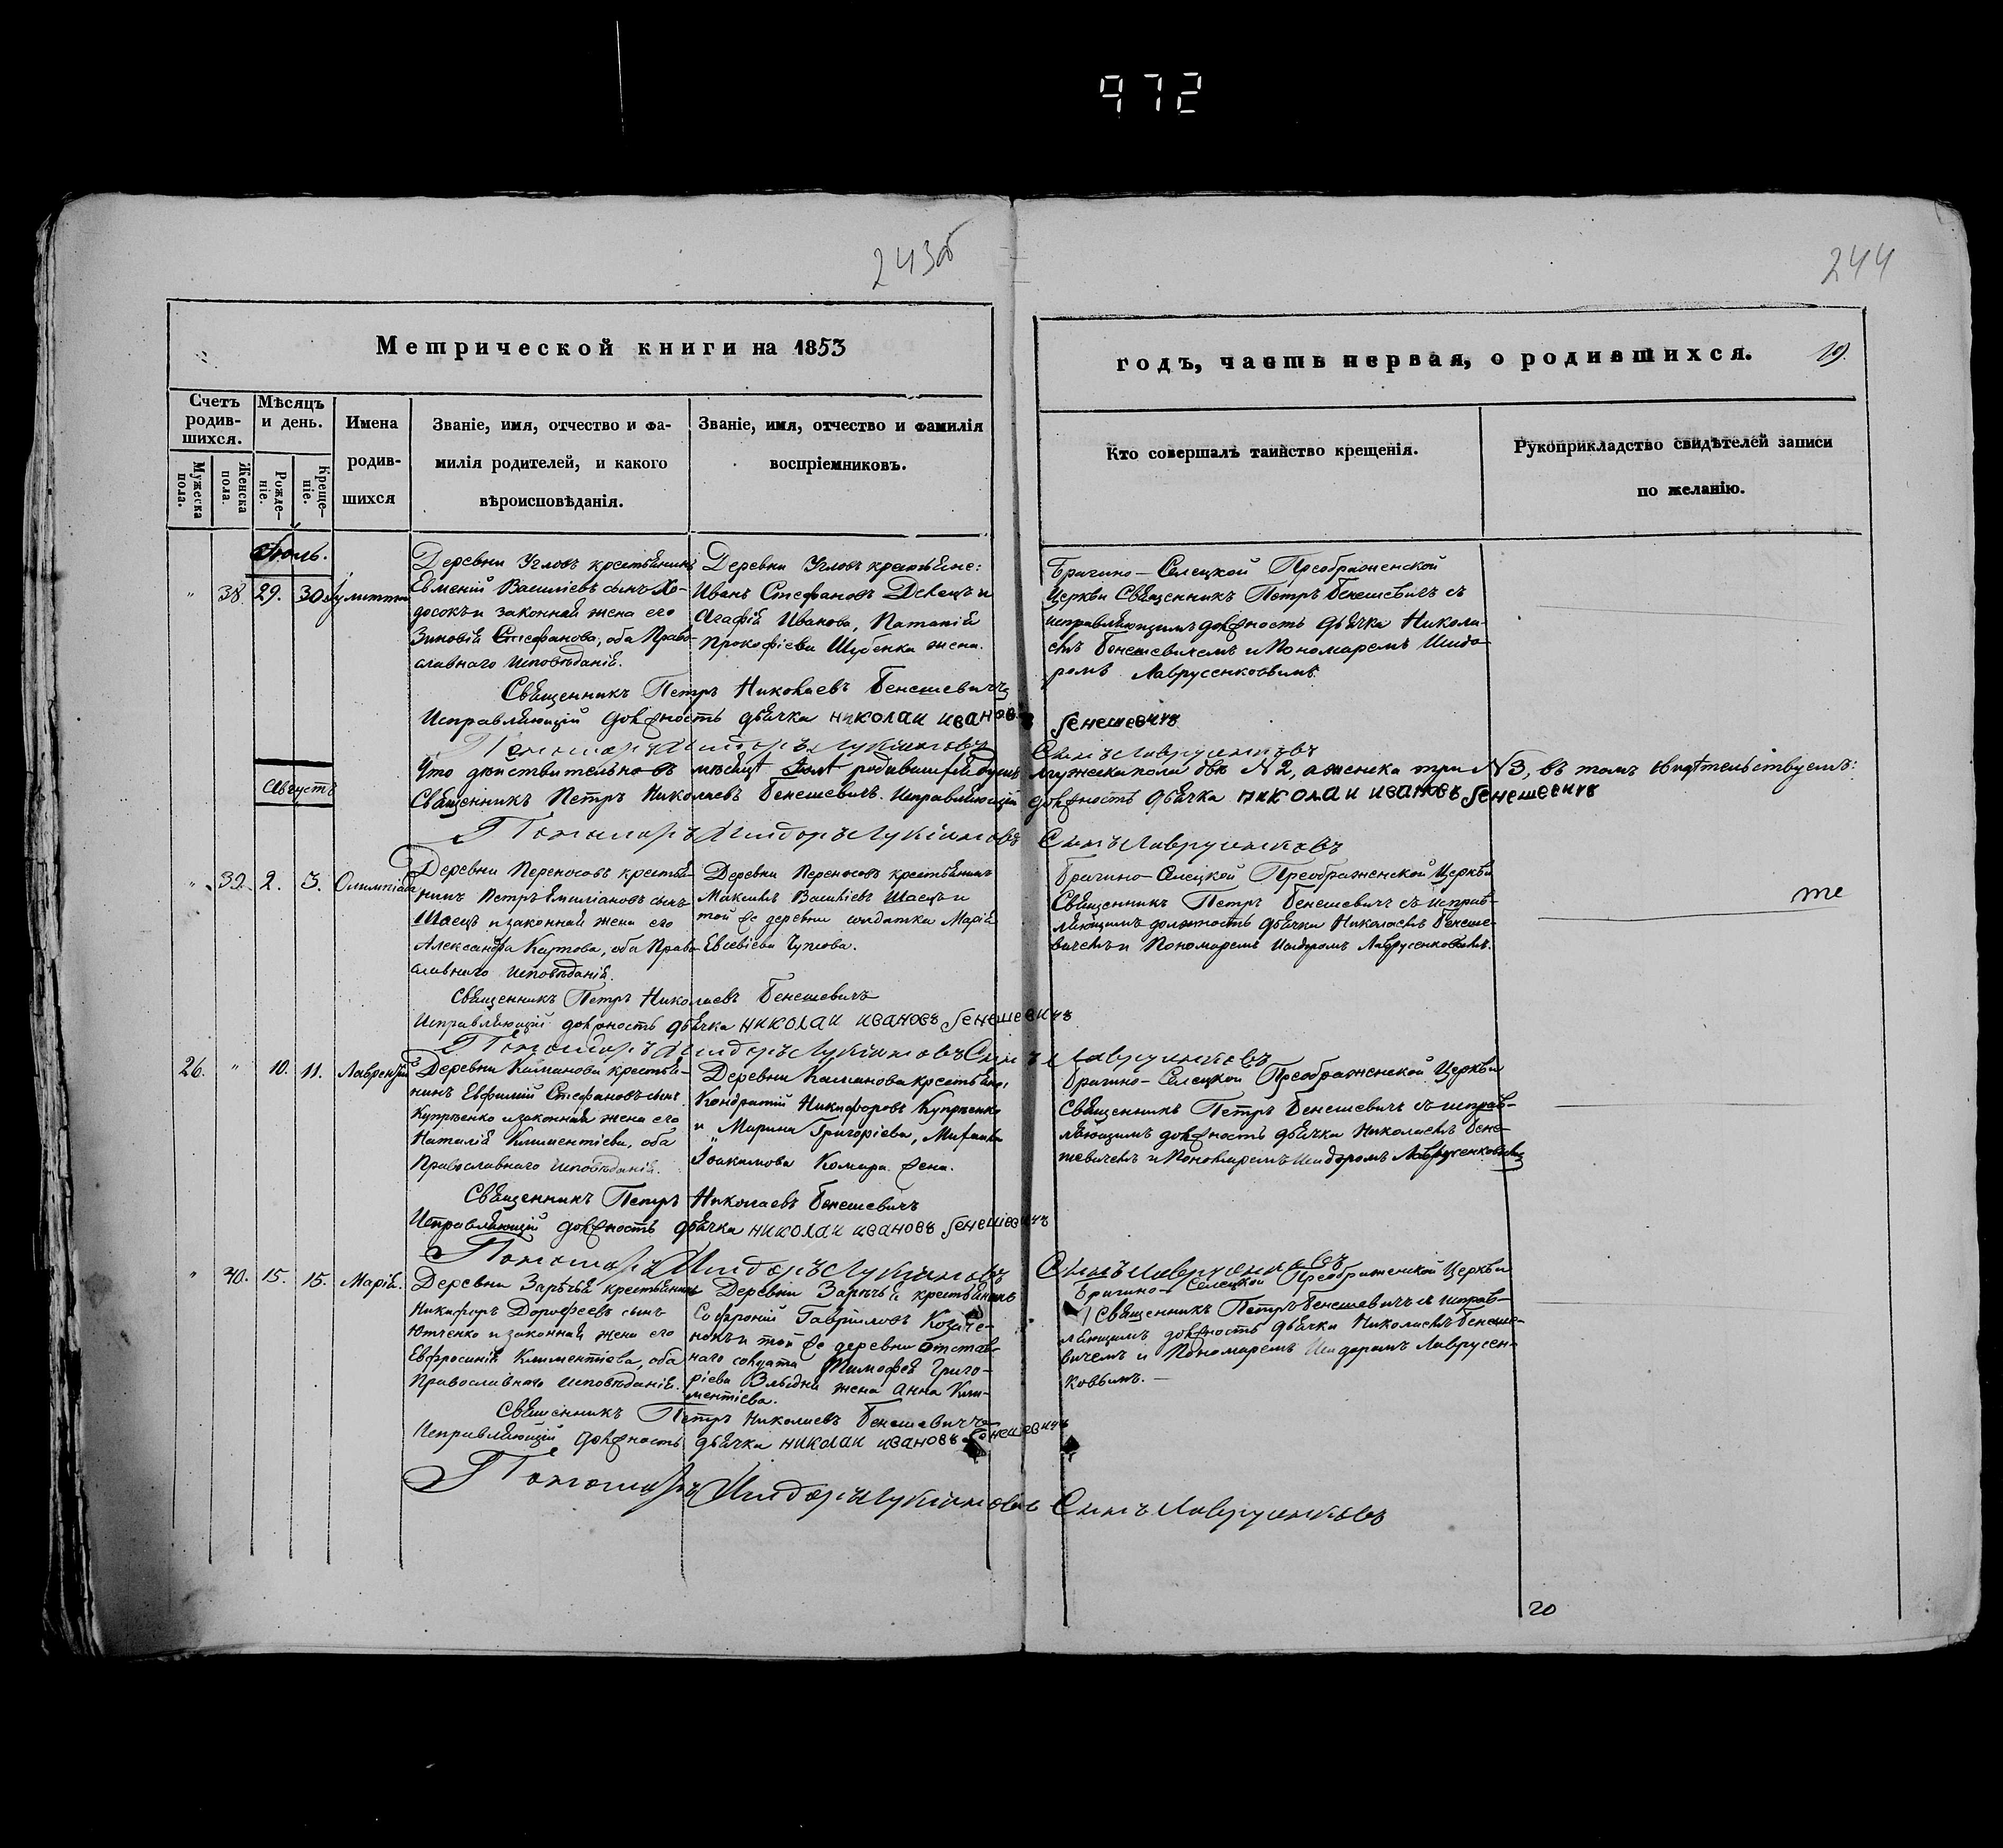 972
243об
244
Метрической книги на 1853
годъ, часть первая, о родившихся.
19.
Счетъ родив-
шихся.
Мужеска пола.
Женска пола.
Мѣсяцъ и день.
Рожде-
ніе.
Креще-
ніе.
Имена
родив-
шихся
Званіе, имя, отчество и фа-
милія родителей, и какого
вѣроисповѣданія.
Званіе, имя, отчество и фамилія
воспріемниковъ.
Кто совершалъ таинство крещенія.
Рукоприкладство свидѣтелей записи
по желанію.
Іюль.
" 38. 29. 30. Іулитта
Деревни Угловъ крестьянинъ
Евменій Василіевъ сынъ Хо-
досокъ и законная жена его
Зиновія Стефанова, оба Право-
славнаго исповѣданія.
Деревни Угловъ крестьяне:
Иванъ Стефановъ Децъ и
Агафія Иванова, Патапія
Прокофіева Шубенка жена.
Брагино-Селецкой Преображенской
Церкви Священникъ Петръ Бенешевичъ съ
исправляющимъ должность дьячка Никола-
емъ Бенешевичемъ и Пономаремъ Исидо-
ромъ Лаврусенковымъ.
Священникъ Петръ Николаевъ Бенешевичъ
Исправляющій должность дьячка николаи ивановъ бенешевичъ
Пономарь Исидоръ Лукіановъ Сынъ Лаврусенковъ
Что дѣйствительно въ мѣсяцѣ Іюлѣ родившихся душъ мужеска пола двѣ N 2, а женска три N 3, въ томъ свидѣтельствуемъ:
Августъ
Священникъ Петръ Николаевъ Бенешевичъ. Исправляющій должность дьячка николаи ивановъ бенешевичъ
Пономарь Исидоръ Лукіановъ Сынъ Лаврусенковъ
" 39. 2. 3. Олимпіада
Деревни Переносовъ крестья-
нинъ Петръ Емиліановъ сынъ
Шаецъ и законная жена его
Александра Карпова, оба Право-
славнаго исповѣданія.
Деревни Переносовъ крестьянинъ
Максимъ Василіевъ Шаецъ и
той же деревни солдатка Марія
Евсевіева
Брагино-Селецкой Преображенской Церкви
Священникъ Петръ Бенешевичъ съ исправ-
ляющимъ должность дьячка Николаемъ Бенеше-
вичемъ и Пономаремъ Исидоромъ Лаврусенковымъ.
те
Священникъ Петръ Николаевъ Бенешевичъ
Исправляющій должность дьячка николаи ивановъ бенешевичъ
Пономарь Исидоръ Лукіановъ Сынъ Лаврусенковъ
26. " 10. 11. Лаврентій
Деревни Каманова крестья-
нинъ Евфимій Стефановъ сынъ
Купрѣенко и законная жена его
Наталія Климентіева, оба
Православнаго исповѣданія.
Деревни Каманова крестьяне:
Кондратій Никифоровъ Купрѣенко
и Марина Григоріева, Михаила
Іоакимова Комара жена.
Брагино-Селецкой Преображенской Церкви
Священникъ Петръ Бенешевичъ съ исправ-
ляющимъ должность дьячка Николаемъ Бене-
шевичемъ и Пономаремъ Исидоромъ Лаврусенковымъ
Священникъ Петръ Николаевъ Бенешевичъ
Исправляющій должность дьячка николаи ивановъ бенешевичъ
Пономарь Исидоръ Лукіановъ Сынъ Лаврусенковъ
" 40. 15. 15. Марія.
Деревни Зарѣчья крестьянинъ
Никифоръ Дорофеевъ сынъ
Ютченко и законная жена его
Евфросинія Климентіева, оба
Православнаго исповѣданія.
Деревни Зарѣчья крестьянинъ
Софроній Гавриловъ Козаче-
нокъ и той же деревни отстав-
наго солдата Тимофея Григо-
ріева жена Анна Кли-
ментіева.
Брагино-Селецкой Преображенской Церкви
Священникъ Петръ Бенешевичъ съ исправ-
ляющимъ должность дьячка Николаемъ Бенеше-
вичемъ и Пономаремъ Исидоромъ Лаврусен-
ковымъ.
Священникъ Петръ Николаевъ Бенешевичъ
Исправляющій должность дьячка николаи ивановъ бенешевичъ
Пономарь Исидоръ Лукіановъ Сынъ Лаврусенковъ
20